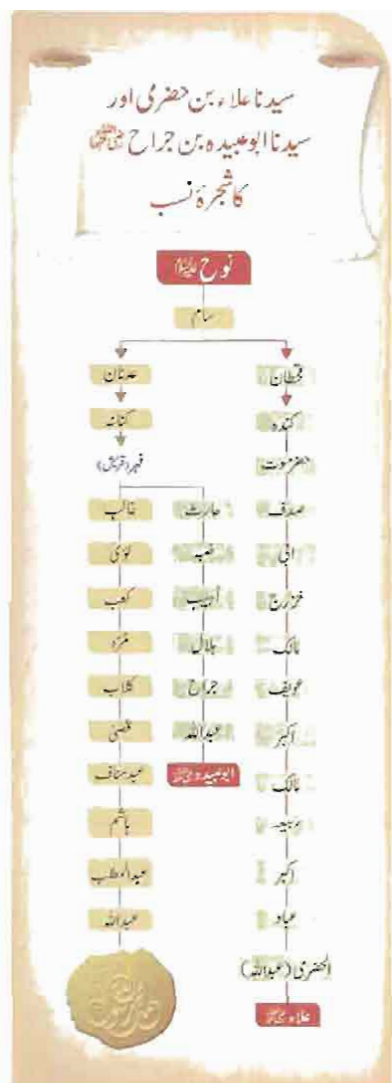 سیدنا علاء بن حضرمی اور
سیدنا ابوعبیدہ بن جراح رضی اللہ عنہما
کا شجرۂ نسب
نوح علیہ السلام
سام
قحطان
کندہ
حضرموت
صدف
ابی
خزرج
مالک
عویف
اکبر
مالک
ربیعہ
اکبر
عباد
الحضرمی (عبداللہ)
علاء رضی اللہ عنہ
عدنان
کنانہ
فہر (قریش)
حارث
ضبہ
اہیب
ہلال
جراح
عبداللہ
ابوعبیدہ رضی اللہ عنہ
غالب
لؤی
کعب
مرّہ
کلاب
قصیّ
عبدمناف
ہاشم
عبدالمطلب
عبداللہ
محمد رسول اللہ